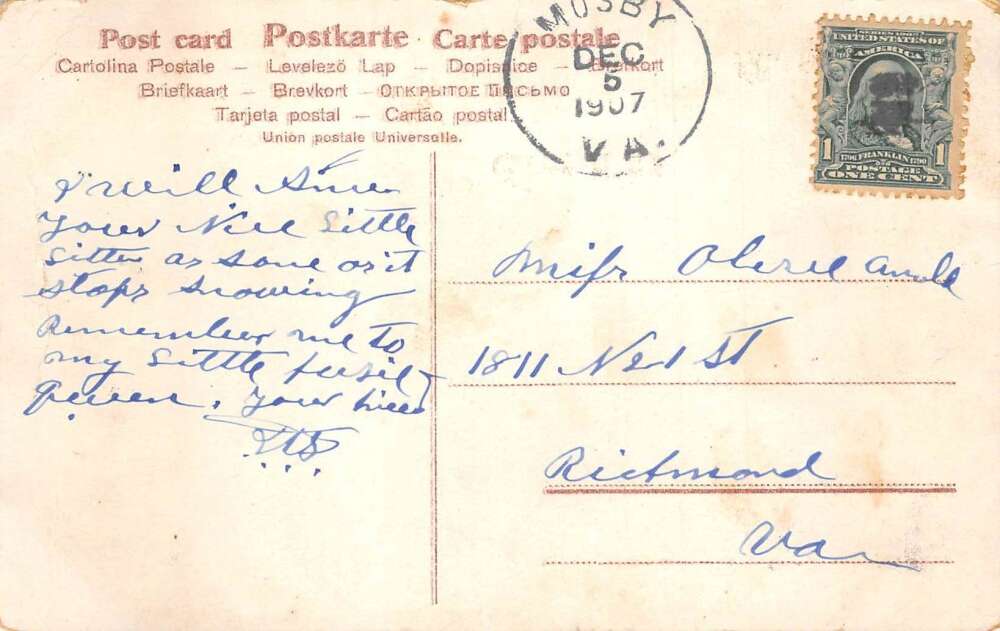 Post card Postkarte Carte postale
Cartolina Postale – Levelező Lap – Dopisnice – Brefkort
Briefkaart – Brevkort – ОТКРЫТОЕ ПИСЬМО
Tarjeta postal – Cartão postal
Union postale Universelle.
MOSBY
DEC
5
1907
VA.
SERIES 1902
UNITED STATES OF
AMERICA
1706 FRANKLIN 1790
POSTAGE
1 ONE CENT
I will
your Nice Little
sitter as sone as it
stops snowing
Remember me to
my Little
queen. your
Miss
1811 N 21 St
Richmond
Va